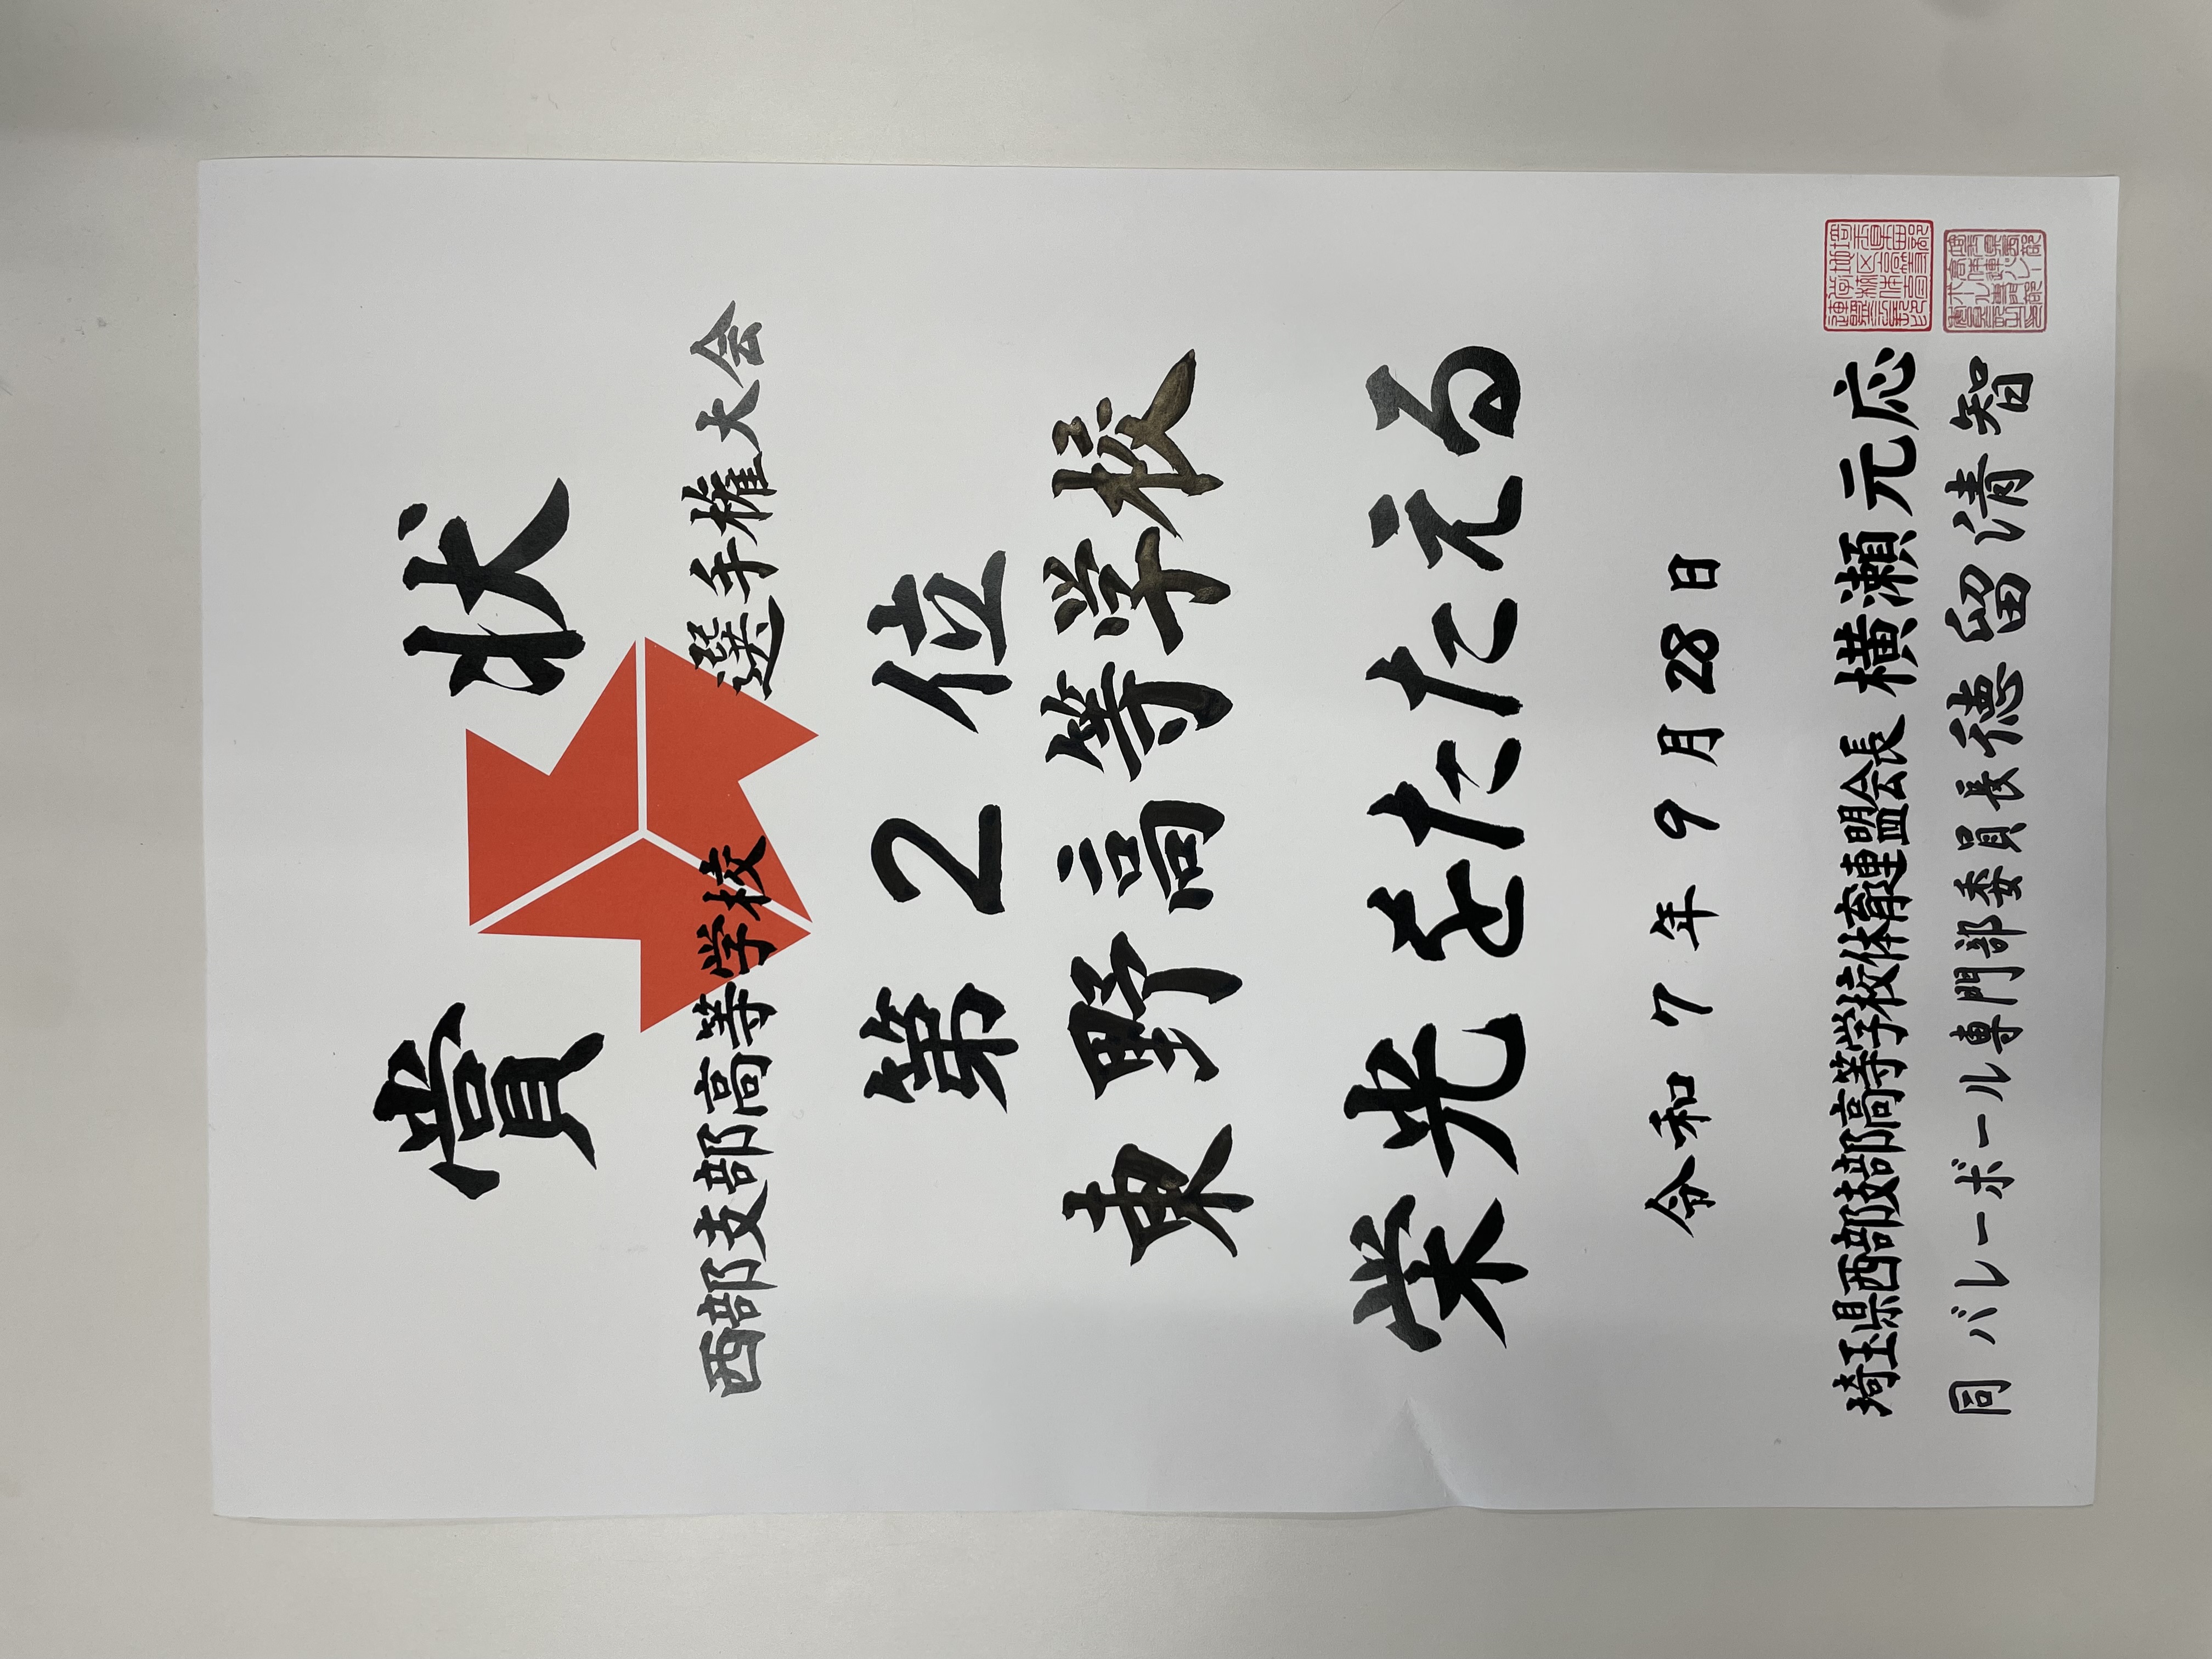 賞状
西部支部高等学校 選手権大会
第2位
東野高等学校
栄光をたたえる
令和7年9月28日
埼玉県西部支部高等学校体育連盟会長 横瀬元応
同 バレーボール専門部委員長 徳留清智